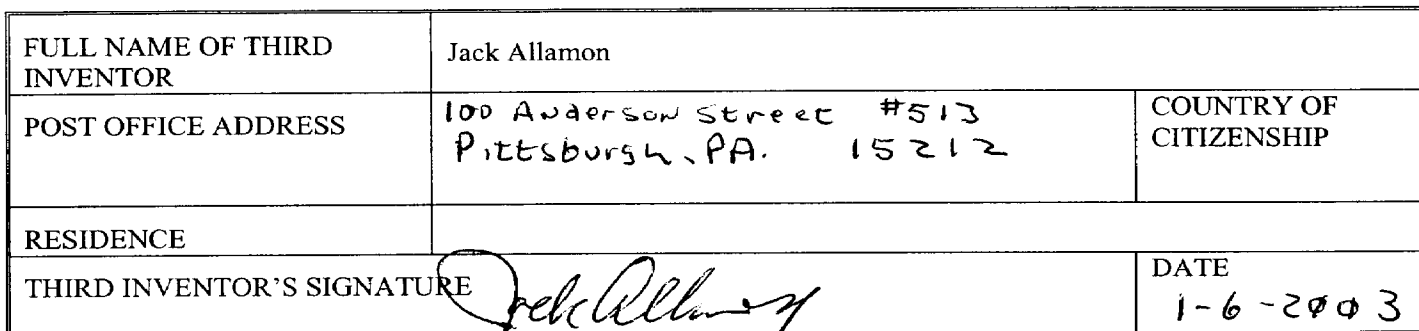 FULL NAME OF THIRD
INVENTOR
Jack Allamon
POST OFFICE ADDRESS
100 Anderson Street #513
Pittsburgh, PA. 15212
COUNTRY OF
CITIZENSHIP
RESIDENCE
THIRD INVENTOR'S SIGNATURE
Jack Allamon
DATE
1-6-2003